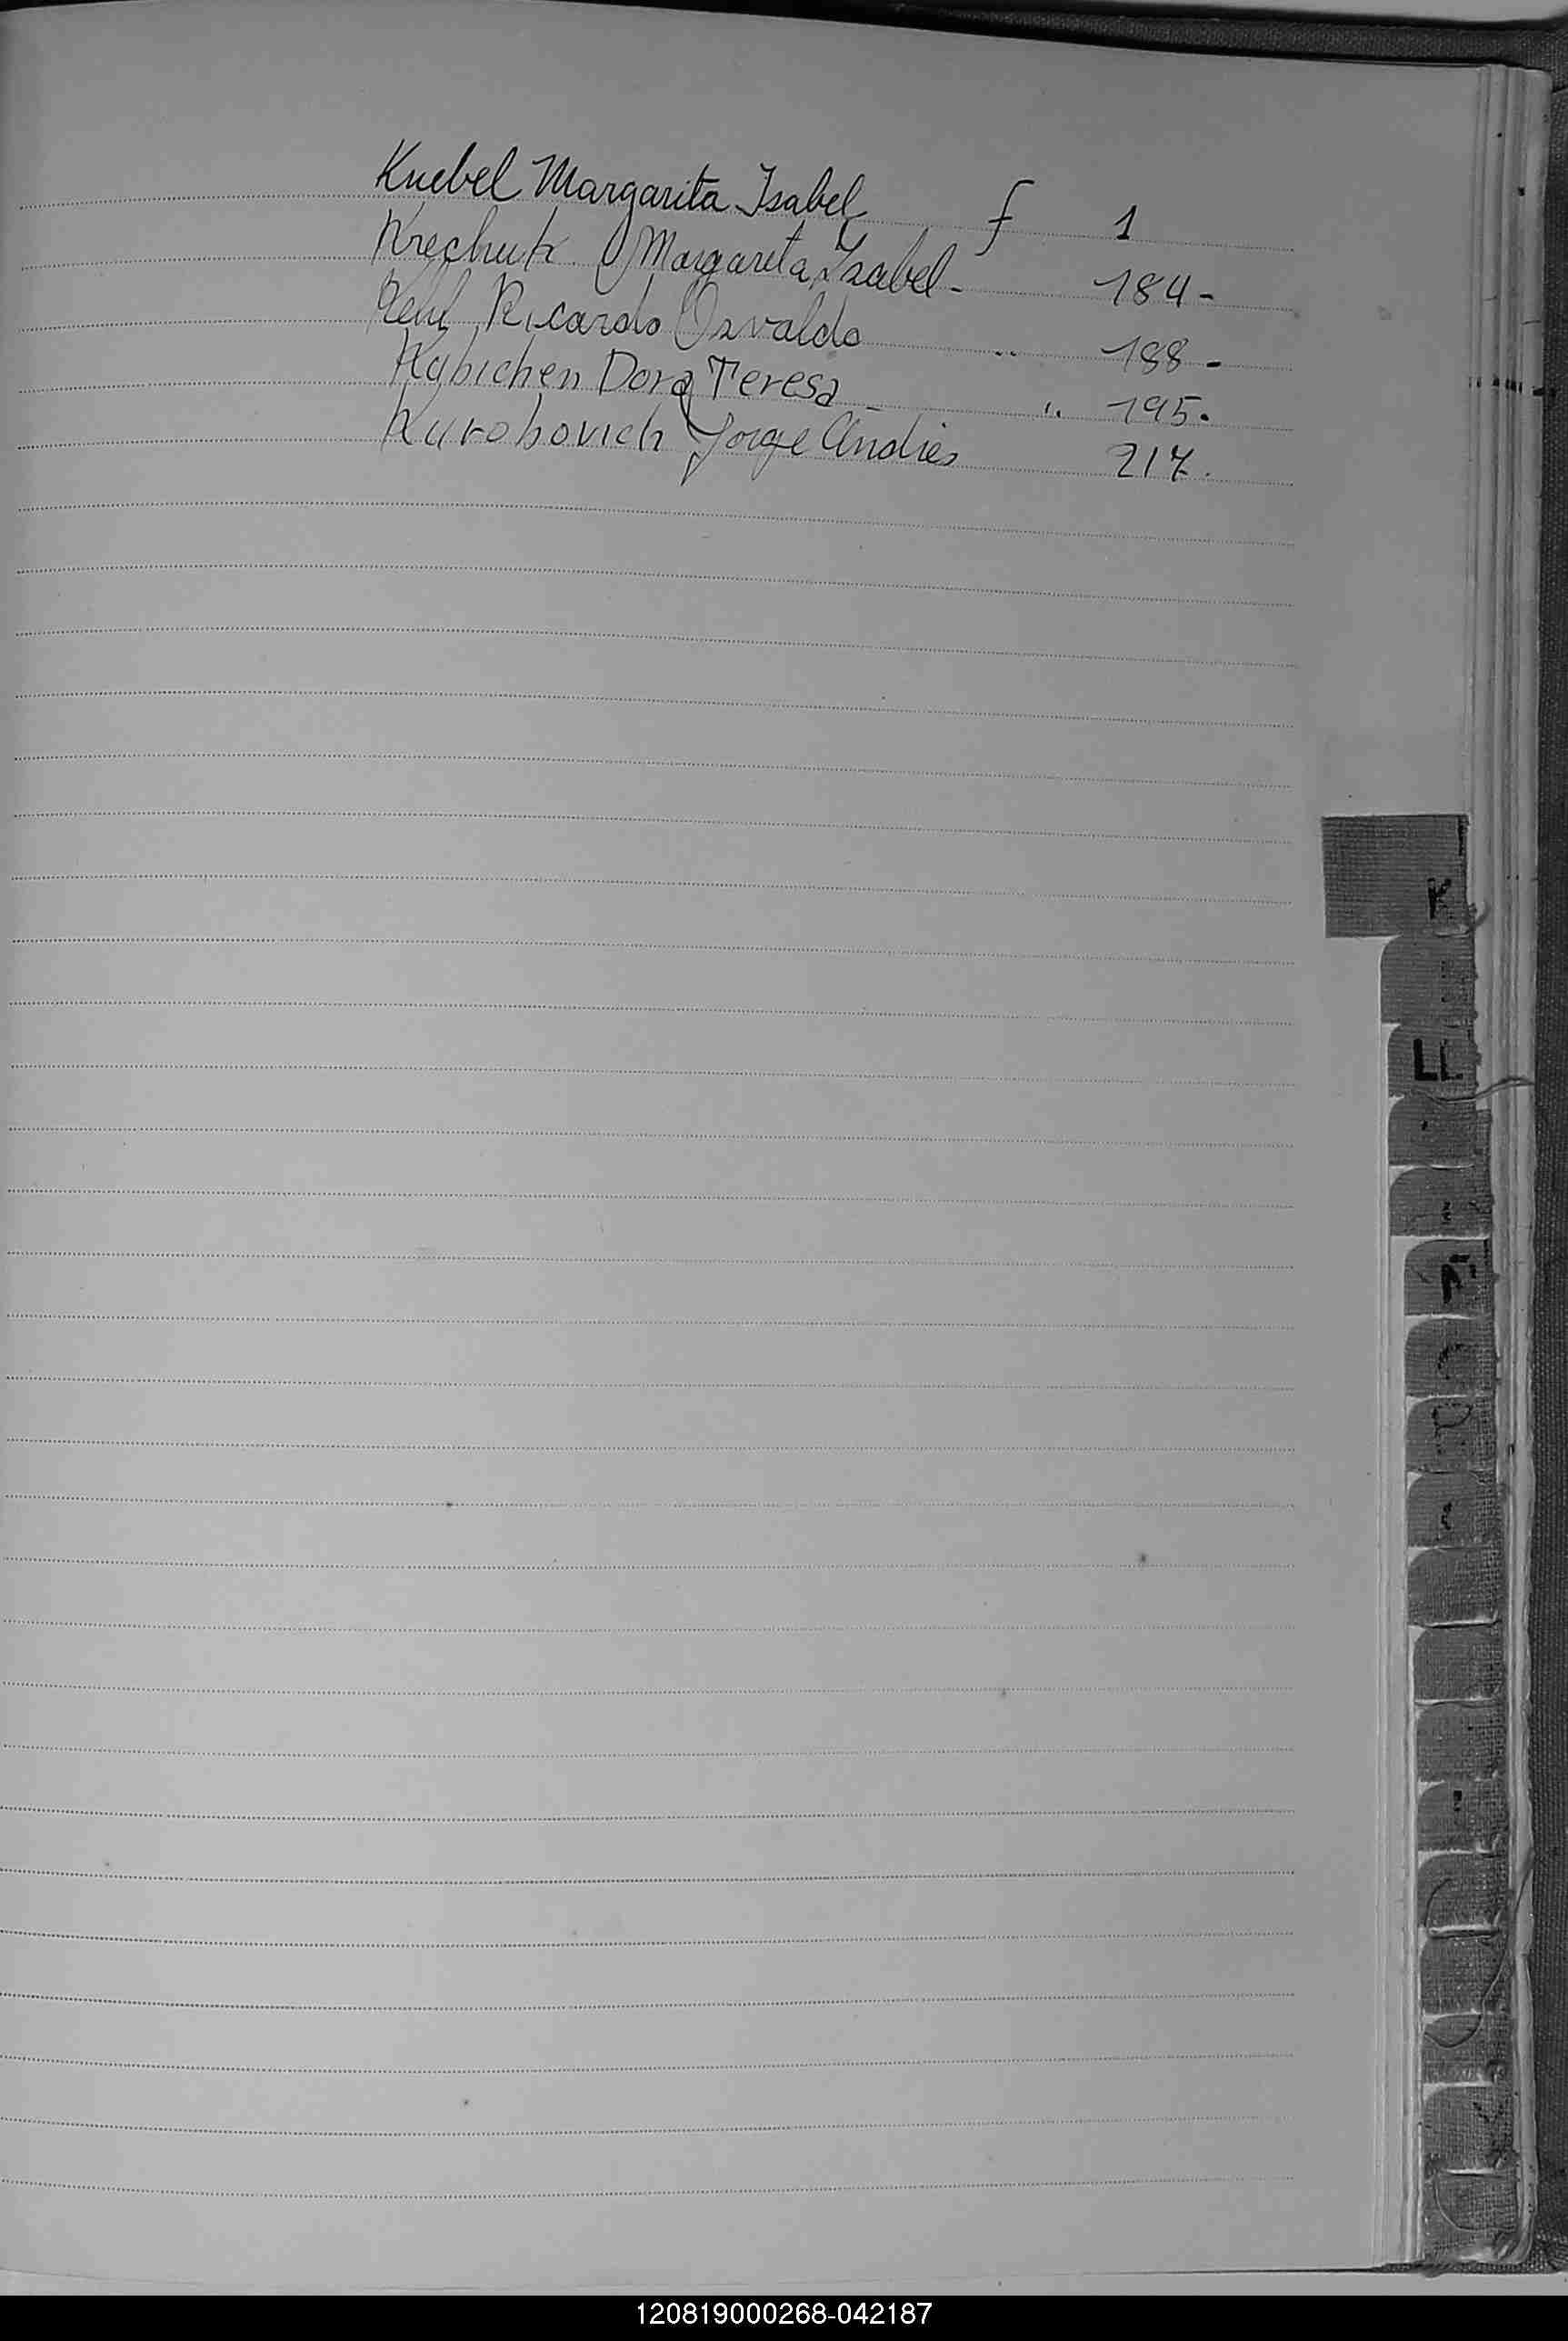 Knebel Margarita Isabel f 1
Krechuk Margarita Ysabel - 184 -
Ricardo Osvaldo " 188 -
Kubichen Dora Teresa - " 195.
Kurobovich Jorge Andres 217.
K
LL
120819000268-042187